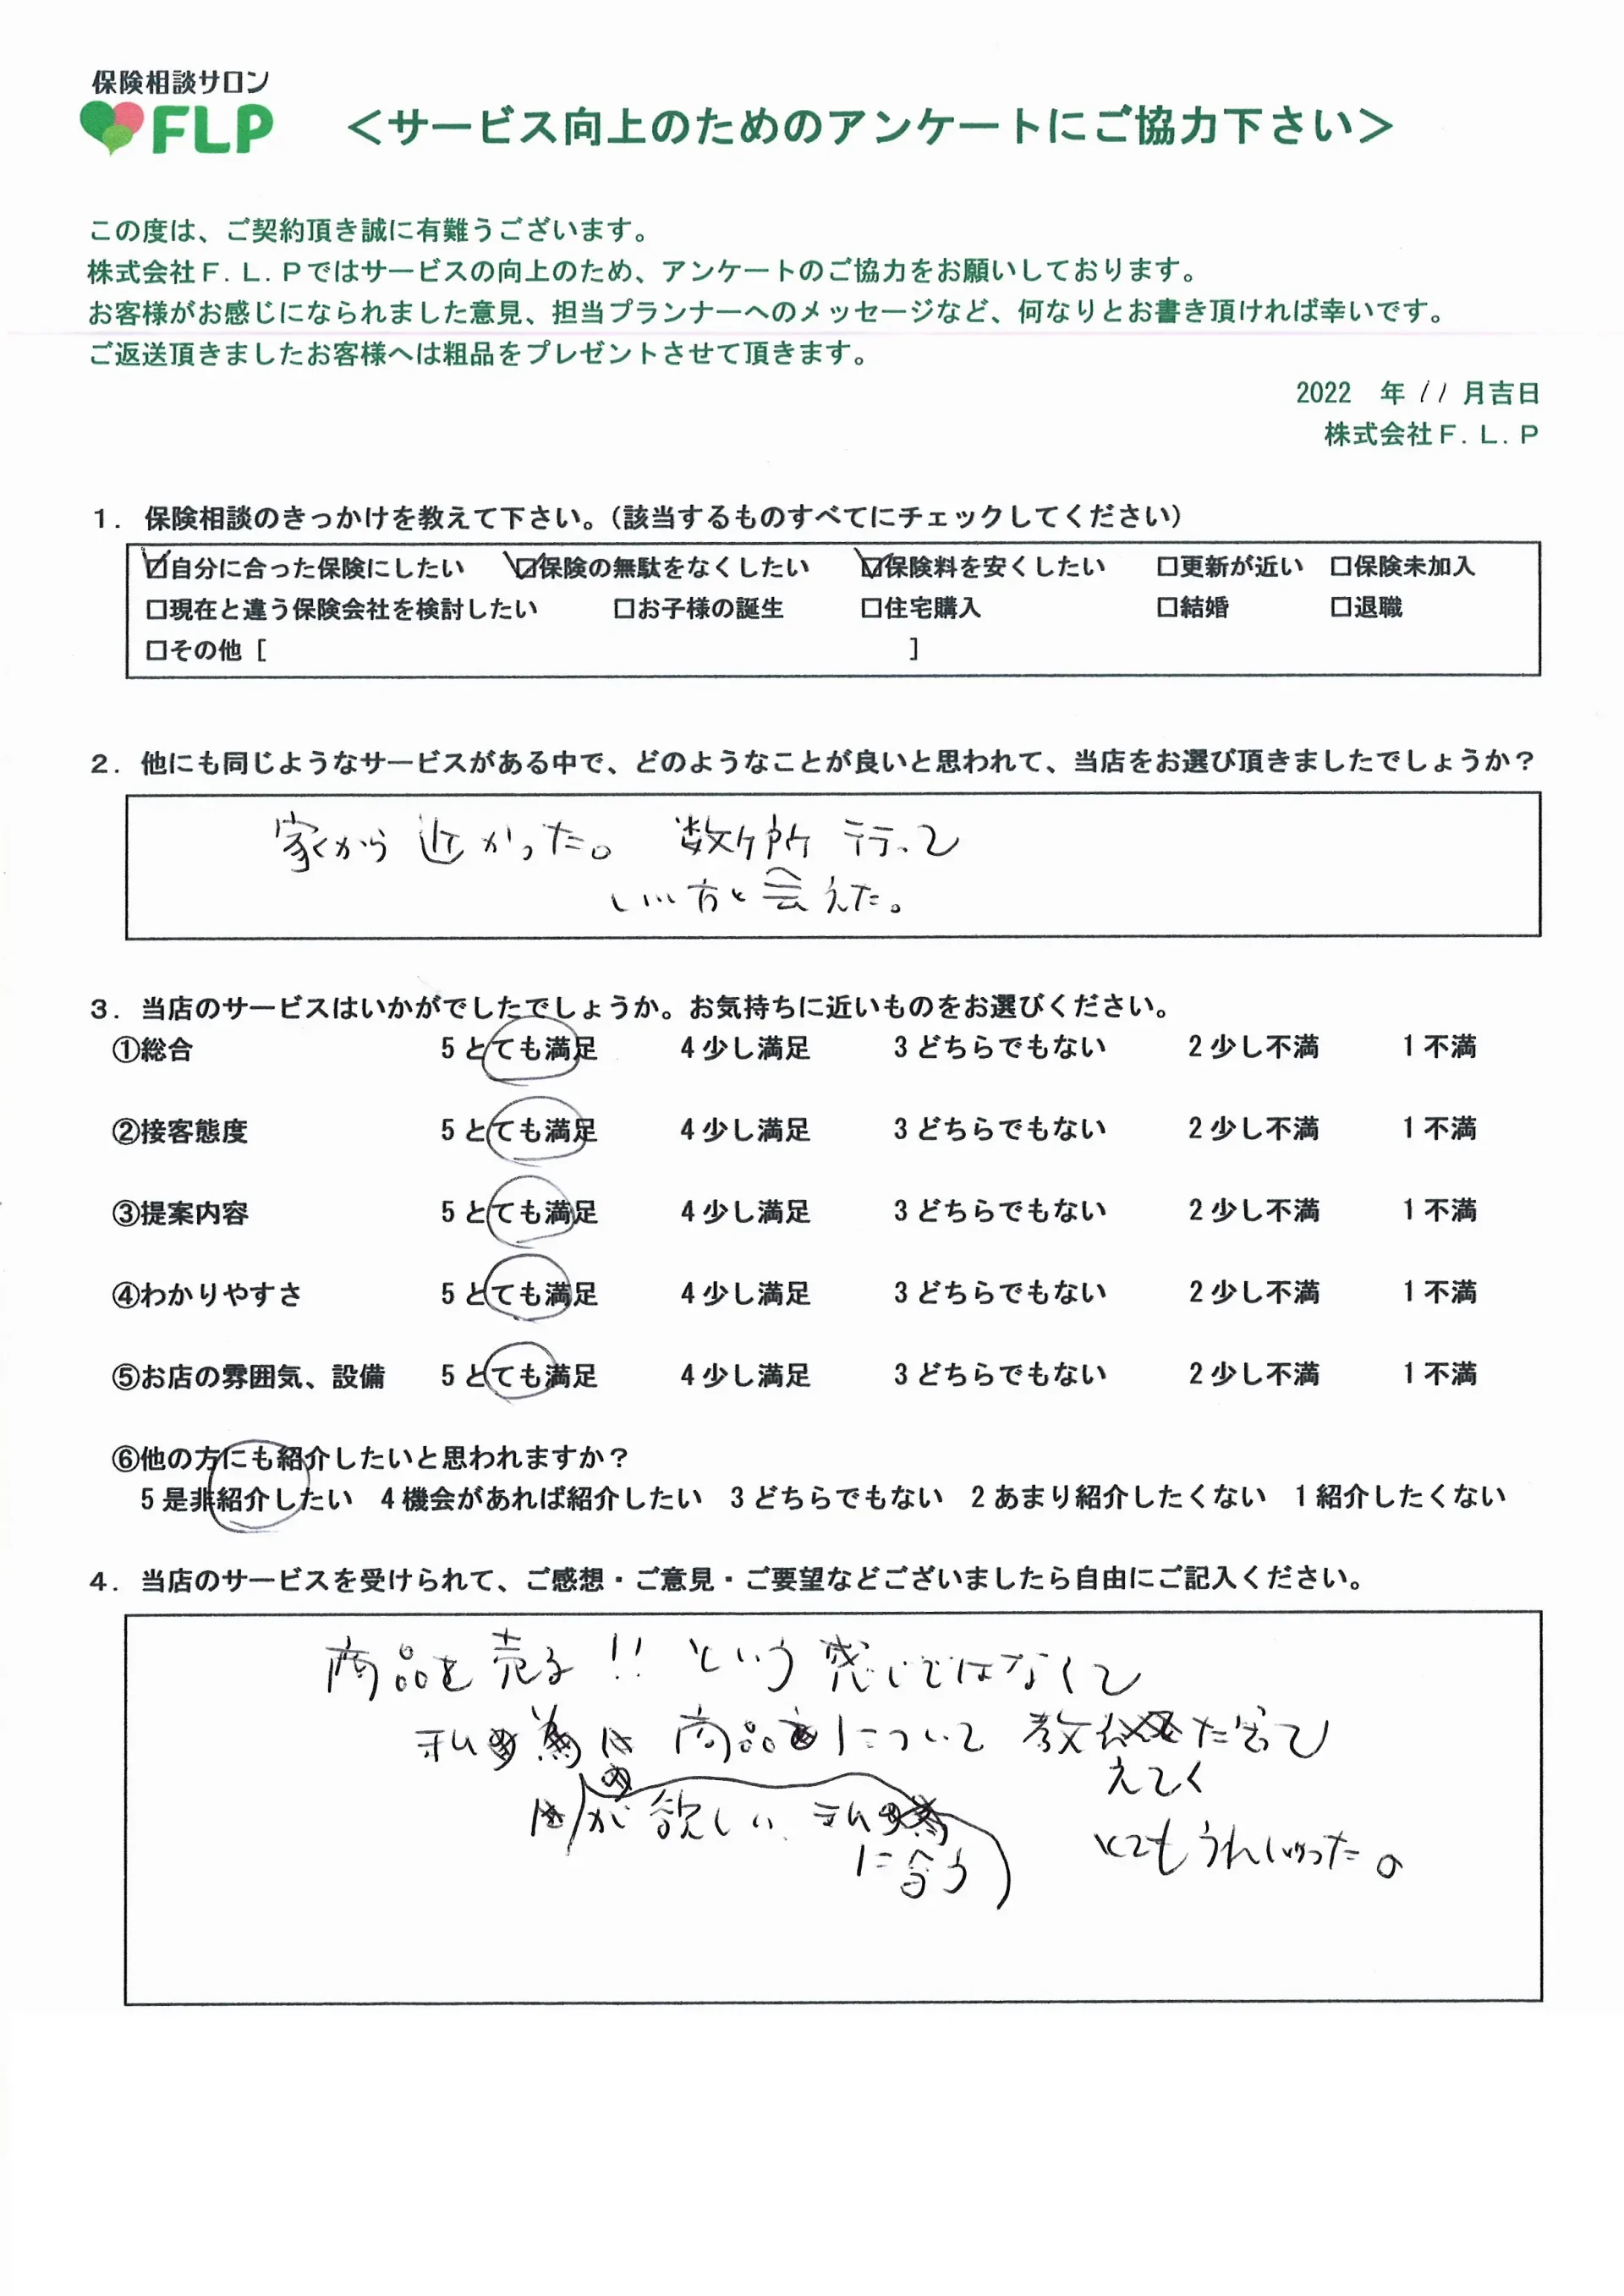 保険相談サロン
FLP
＜サービス向上のためのアンケートにご協力下さい＞
この度は、ご契約頂き誠に有難うございます。
株式会社Ｆ．Ｌ．Ｐではサービスの向上のため、アンケートのご協力をお願いしております。
お客様がお感じになられました意見、担当プランナーへのメッセージなど、何なりとお書き頂ければ幸いです。
ご返送頂きましたお客様へは粗品をプレゼントさせて頂きます。
2022 年 11 月吉日
株式会社Ｆ．Ｌ．Ｐ
１．保険相談のきっかけを教えて下さい。（該当するものすべてにチェックしてください）
☑自分に合った保険にしたい ☑保険の無駄をなくしたい ☑保険料を安くしたい □更新が近い □保険未加入
□現在と違う保険会社を検討したい □お子様の誕生 □住宅購入 □結婚 □退職
□その他 [ ]
２．他にも同じようなサービスがある中で、どのようなことが良いと思われて、当店をお選び頂きましたでしょうか？
家から近かった。 数ヶ所 行って
いい方と会えた。
３．当店のサービスはいかがでしたでしょうか。お気持ちに近いものをお選びください。
①総合 5 とても満足 4 少し満足 3 どちらでもない 2 少し不満 1 不満
②接客態度 5 とても満足 4 少し満足 3 どちらでもない 2 少し不満 1 不満
③提案内容 5 とても満足 4 少し満足 3 どちらでもない 2 少し不満 1 不満
④わかりやすさ 5 とても満足 4 少し満足 3 どちらでもない 2 少し不満 1 不満
⑤お店の雰囲気、設備 5 とても満足 4 少し満足 3 どちらでもない 2 少し不満 1 不満
⑥他の方にも紹介したいと思われますか？
5 是非紹介したい 4 機会があれば紹介したい 3 どちらでもない 2 あまり紹介したくない 1 紹介したくない
４．当店のサービスを受けられて、ご感想・ご意見・ご要望などございましたら自由にご記入ください。
商品を売る！！ という感じではなくて
私 商品 について 教 だって
えてく
が欲しい 私
に合う
とてもうれしかった。